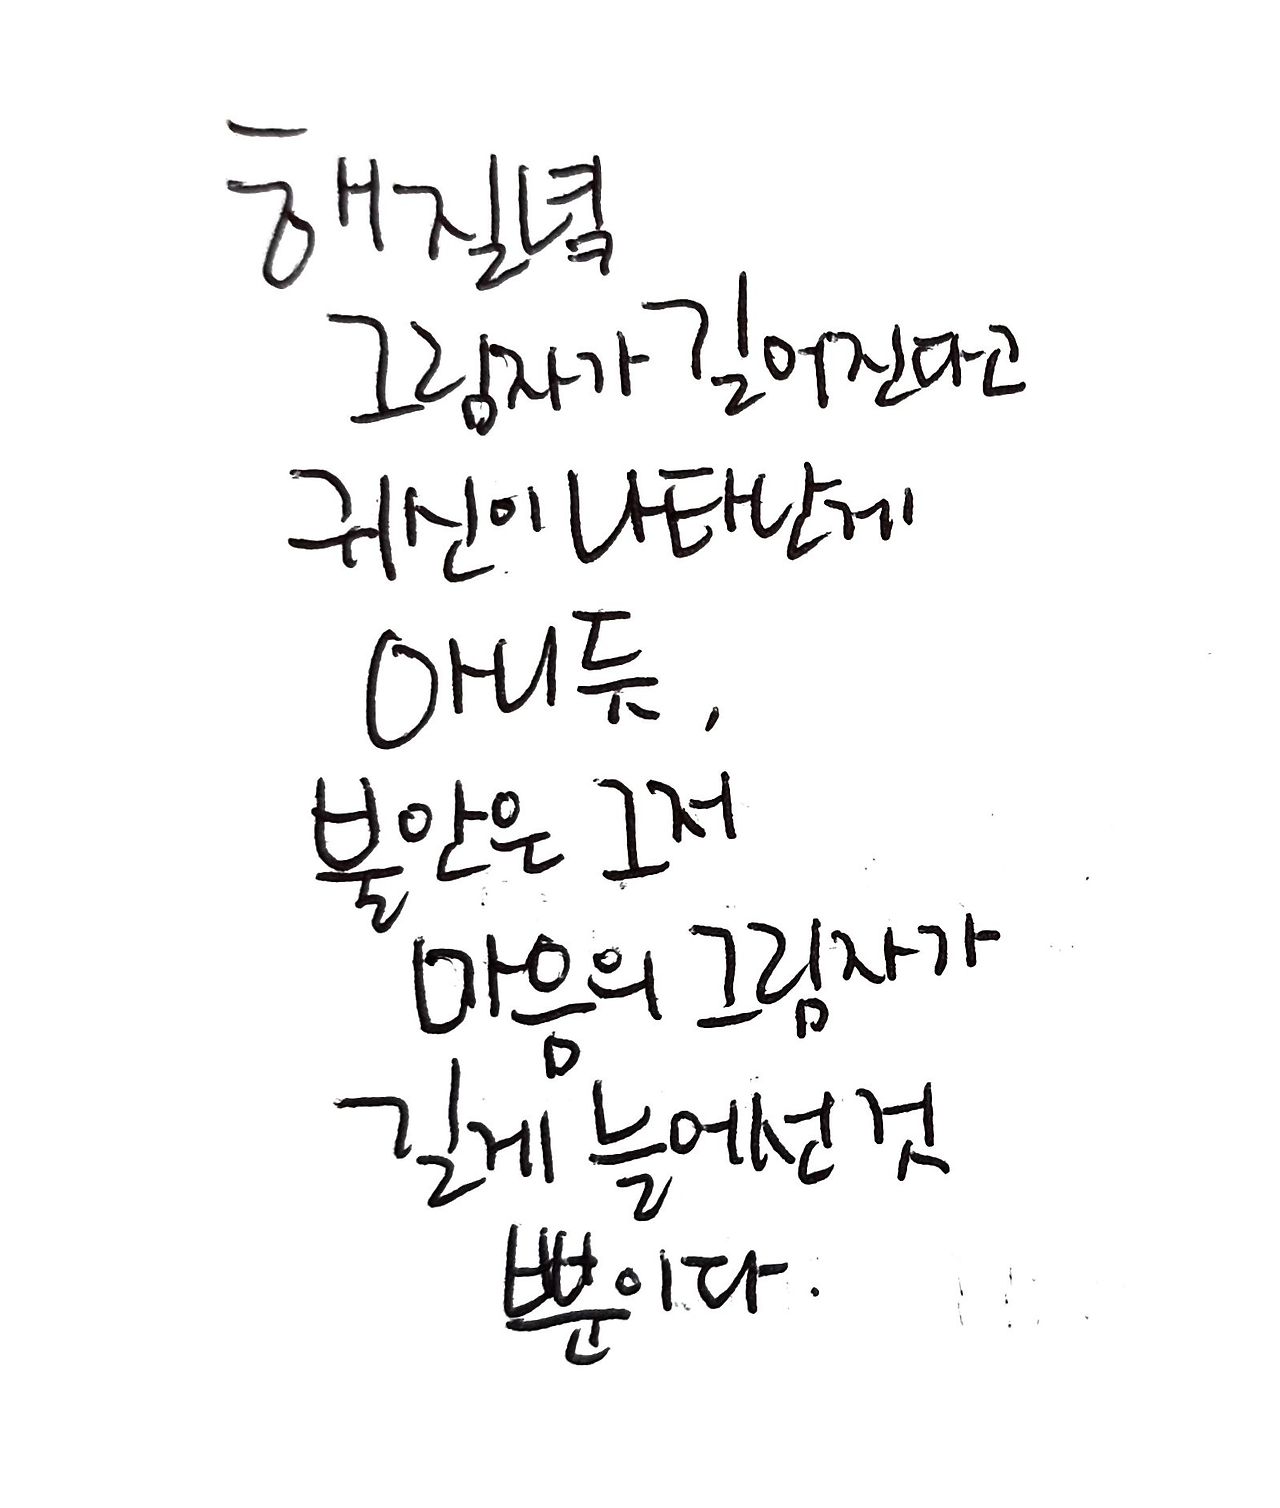 해질녘
그림자가 길어진다고
귀신이 나타난게
아니듯,
불안은 그저
마음의 그림자가
길게 늘어선 것
뿐이다.